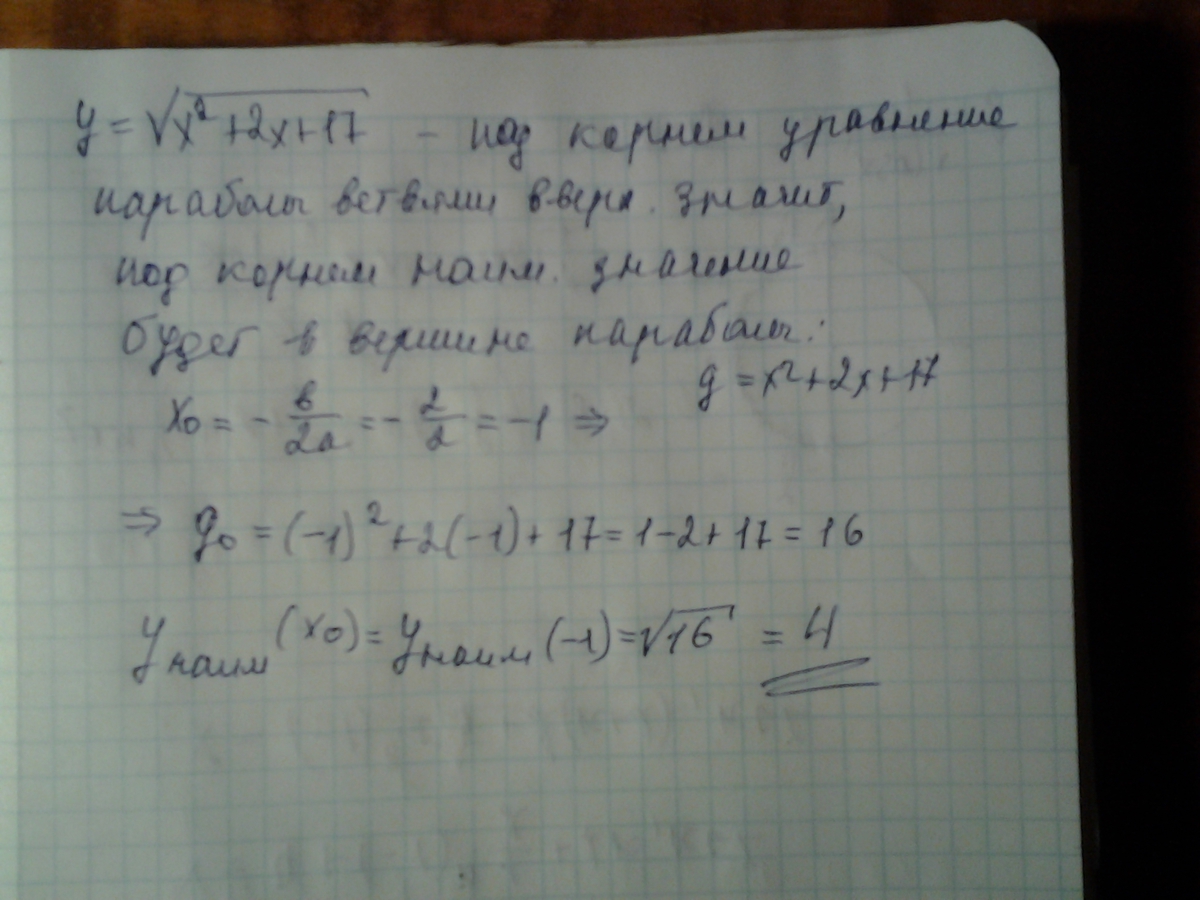 y = √x²+2x+17 – под корнем уравнение
параболы ветвями вверх. Значит,
под корнем наим. значение
будет в вершине параболы:
g = x²+2x+17
x₀ = - в/2a = - 2/2 = -1 ⇒
⇒ g₀ = (-1)² +2(-1)+ 17 = 1-2+17 = 16
y наим (x₀) = y наим (-1) = √16 = 4